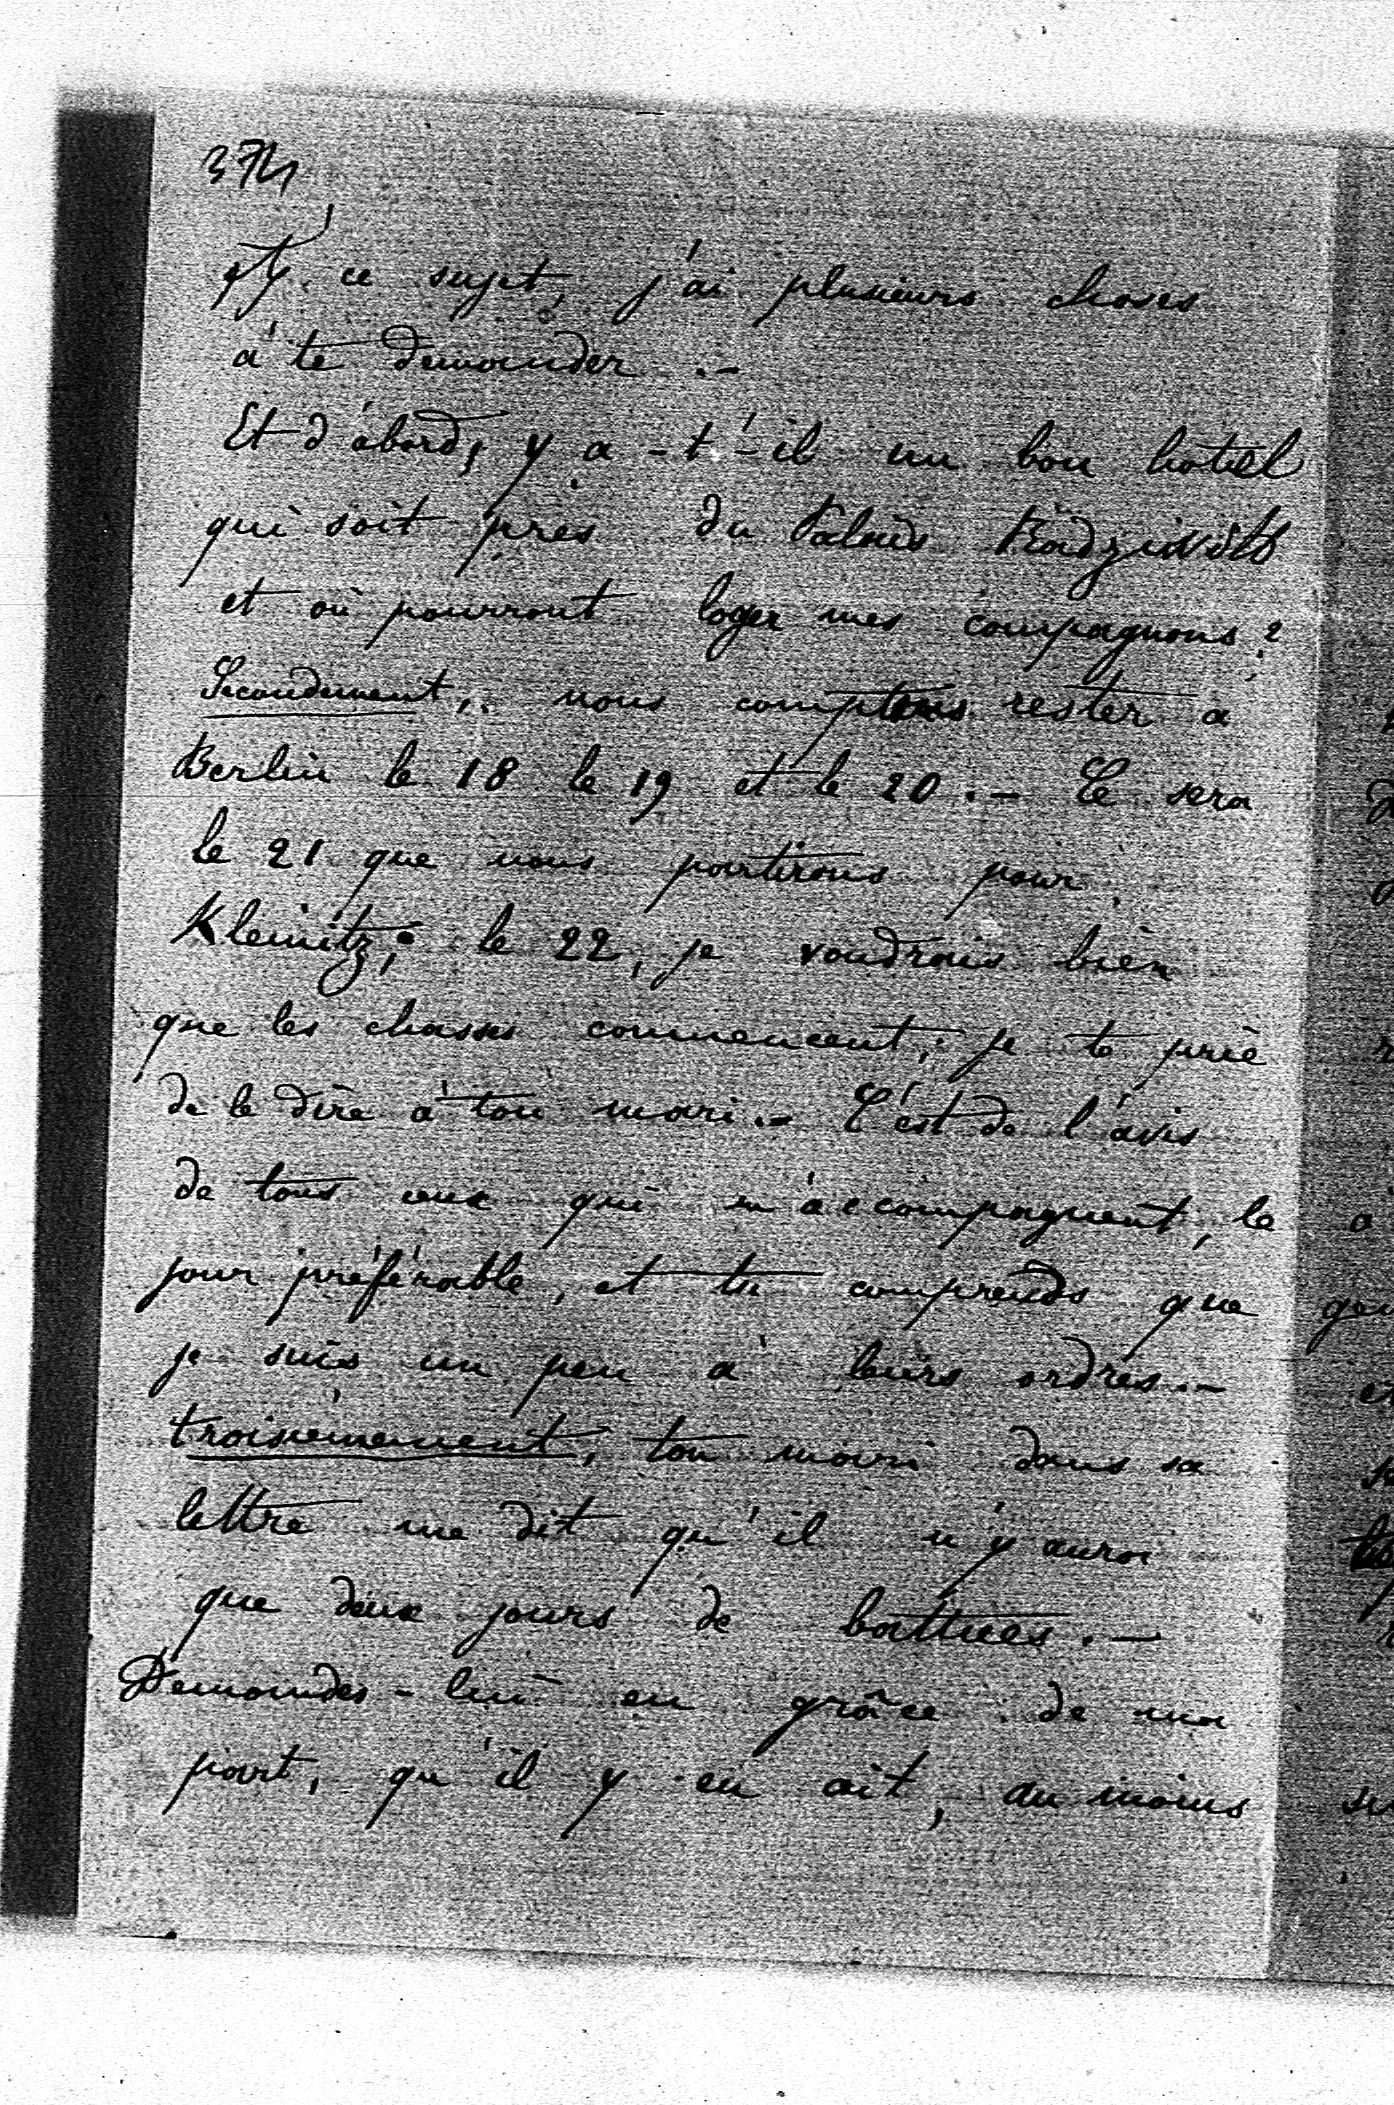 374
A ce sujet, j'ai plusieurs choses
à te demander .–
Et d'abord, y a-t'-il un bon hotel
qui soit près du Palais Radziwill
et où pourront loger mes compagnons ?
Secondement, nous comptons rester à
Berlin le 18 le 19 et le 20 .– Ce sera
le 21 que nous partirons pour
Kleinitz; le 22, je voudrais bien
que les chasses commencent; je te prie
de le dire à ton mari .– C'est de l'avis
de tous ceux qui m'accompagnent, le
jour préférable, et tu comprends que
je suis un peu à leurs ordres .–
troisièmement, ton mari dans sa
lettre me dit qu'il n'y aura
que deux jours de battues .–
Demandes-lui en grâce de ma
part, qu'il y en ait, au moins